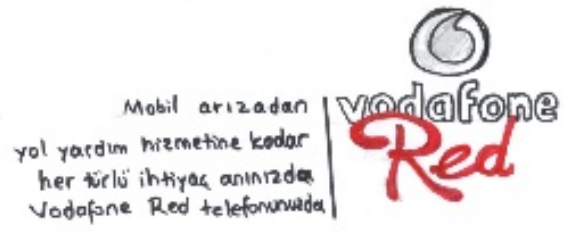 Mobil arızadan
yol yardım hizmetine kadar
her türlü ihtiyaç anınızda
Vodafone Red telefonunuzda
vodafone
Red